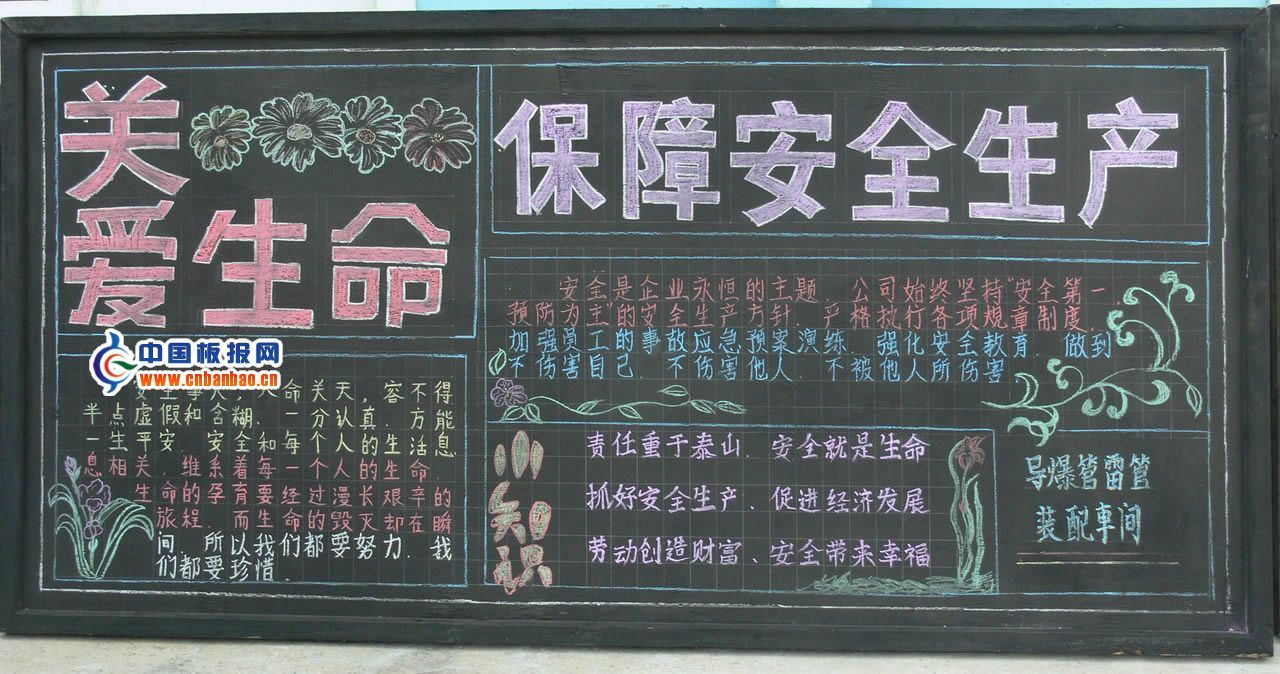 关
爱生命
保障安全生产
中国板报网
www.cnbanbao.cn
命关天，容不得
半点虚假和含糊．一分认真．方能
一生平安．安全和每个人的生活息
息相关，维系着每一个人的生命．
生命的孕育要经过漫长艰辛的
旅程．而生命的毁灭却在瞬
间．所以我们都要努力．我
们都要珍惜．
安全是企业永恒的主题．公司始终坚持"安全第一．
预防为主"的安全生产方针．严格执行各项规章制度．
加强员工的事故应急预案演练．强化安全教育．做到
不伤害自己．不伤害他人．不被他人所伤害
小知识
责任重于泰山．安全就是生命
抓好安全生产．促进经济发展
劳动创造财富、安全带来幸福
导爆管雷管
装配车间